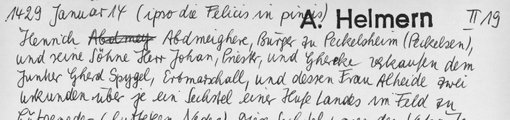 1429 Januar 14 (ipso die Felicis in pincis) A. Helmern II 19
Henrich Abdmeighere, Bürger zu Peckelsheim (Peckelsen),
und seine Söhne Herr Johan, Priester, und Ghereke verkaufen dem
Junker Gherd Spygel, Erbmarschall, und dessen Frau Alheide zwei
Urkunden über je ein Sechstel einer Hufe Landes im Feld zu